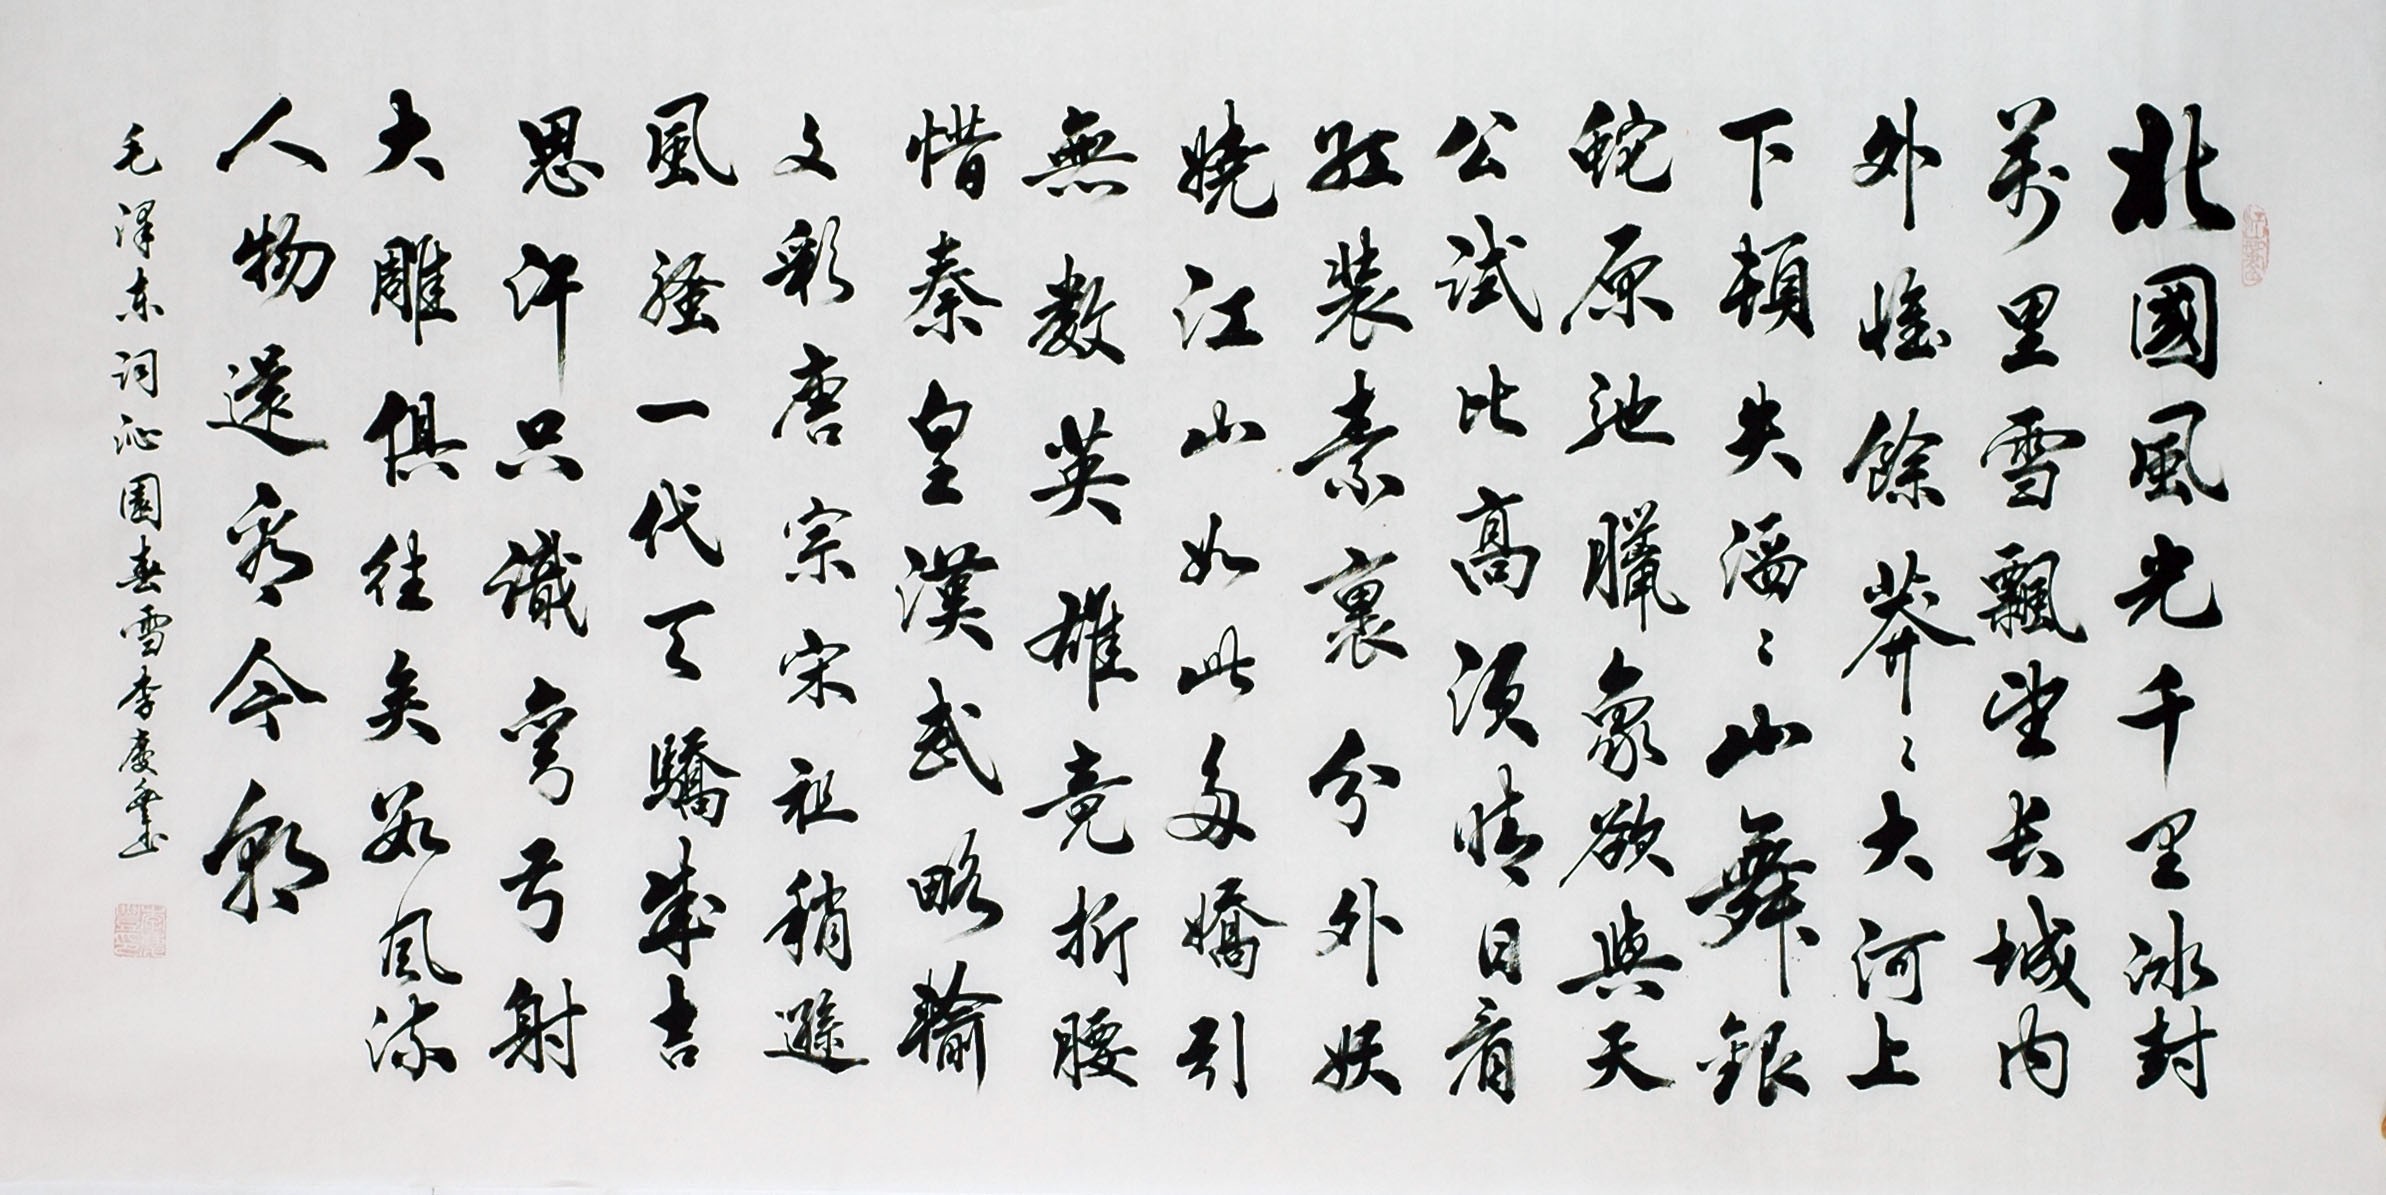 北國風光千里冰封
萬里雪飄望长城内
外惟餘莽〻大河上
下頓失滔〻山舞銀
蛇原馳臘象欲與天
公試比高須晴日看
紅裝素裹分外妖
嬈江山如此多嬌引
無數英雄竞折腰
惜秦皇漢武略輸
文彩唐宗宋祖稍遜
風騷一代天驕成吉
思汗只識彎弓射
大雕俱往矣數風流
人物還看今朝
毛澤东词沁園春雪李慶